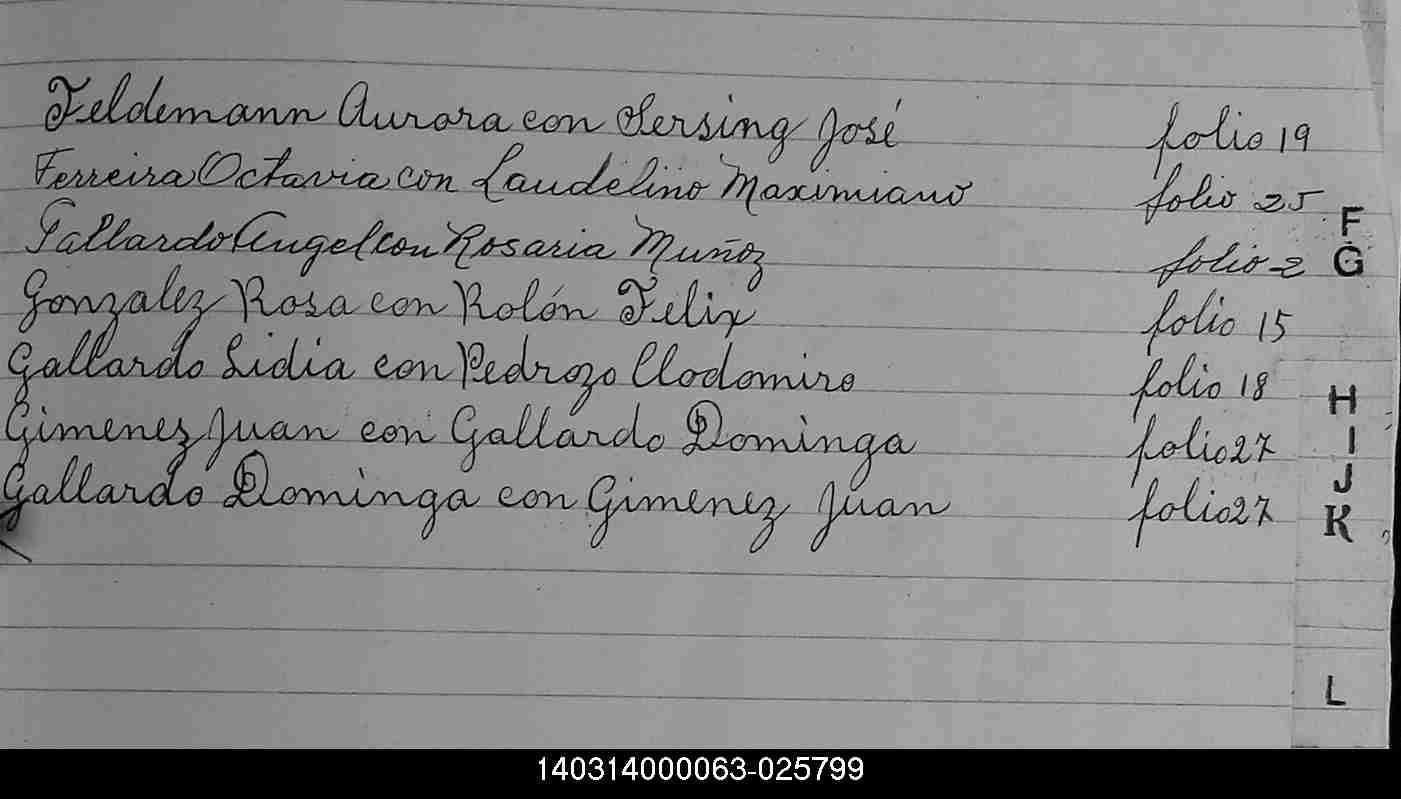 Feldemann Aurora con Sersing José folio 19
Ferreira Octavia con Laudelino Maximiano folio 25
Gallardo Angel con Rosaria Muñoz folio 2
Gonzalez Rosa con Rolón Felix folio 15
Gallardo Lidia con Pedrozo Clodomiro folio 18
Gimenez Juan con Gallardo Dominga folio 27
Gallardo Dominga con Gimenez Juan folio 27
F
G
H
I
J
K
L
140314000063-025799